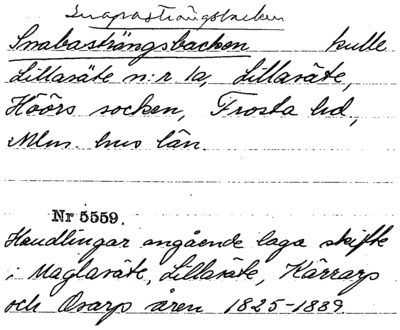 Snaprasträngsbacken
Snabasträngsbacken kulle
Lillasäte n:r 1a, Lillasäte,
Höörs socken, Frosta hd,
Mlm. hus län.
Nr 5559.
Handlingar angående laga skifte
i Maglasäte, Lillasäte, Kärrarp
och Ovarp åren 1825-1889.